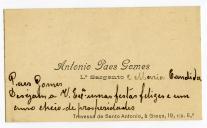 Antonio Paes Gomes
1.º Sargento e Maria Candida
Paes Gomes
Desejam a V. Exª umas festas felizes e um
anno cheio de prosperidades
Travessa de Santo Antonio, à Graça, 19, r/c. E.º